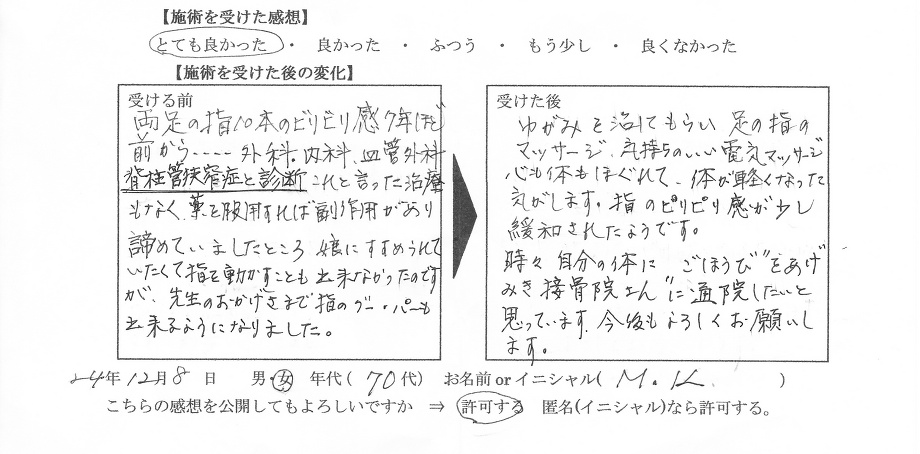 【施術を受けた感想】
とても良かった ・ 良かった ・ ふつう ・ もう少し ・ 良くなかった
【施術を受けた後の変化】
受ける前
両足の指10本のビリビリ感7年ほど
前から‥‥‥外科。内科、血管外科
脊柱管狭窄症と診断 これと言った治療
もなく、薬を服用すれば副作用があり
諦めていましたところ 娘にすすめられて
いたくて指を動かすことも出来なかったのです
が、先生のおかげさまで指のグー・パーも
出来るようになりました。
受けた後
ゆがみを治してもらい 足の指の
マッサージ、気持ちのいい電気マッサージ
心も体もほぐれて、体が軽くなった
気がします。指のピリピリ感が少し
緩和されたようです。
時々 自分の体に ごほうび"をあげ
みき接骨院さん"に通院したいと
思っています。今後もよろしくお願いし
ます。
24年12月8日 男・女 年代(70代) お名前orイニシャル( M.K. )
こちらの感想を公開してもよろしいですか ⇒ 許可する 匿名(イニシャル)なら許可する。